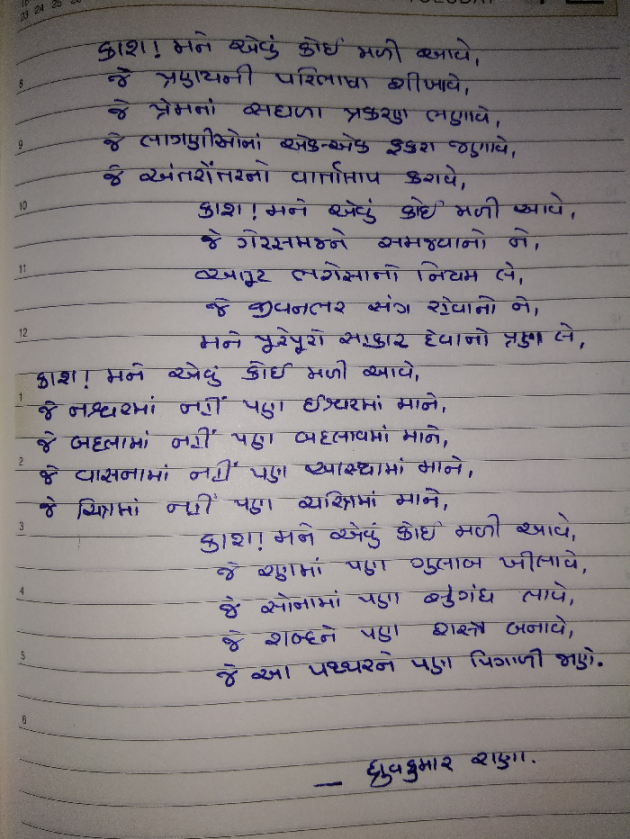 23 24 25 26
TUESDAY
કાશ! મને એવું કોઈ મળી આવે,
8
જે પ્રણયની પરિભાષા શીખાવે,
જે પ્રેમનાં સઘળા પ્રકરણ ભણાવે,
9
જે લાગણીઓનાં એક-એક ફકરા જણાવે,
જે અંતરોંતરનો વાર્તાલાપ કરાવે,
10
કાશ! મને એવું કોઈ મળી આવે,
જે ગેરસમજને સમજવાનો ને,
11
અતૂટ ભરોસાનો નિયમ લે,
જે જીવનભર સંગ રહેવાનો ને,
12
મને પૂરેપૂરો સહકાર દેવાનો પ્રણ લે,
કાશ! મને એવું કોઈ મળી આવે,
1
જે નશ્વરમાં નહીં પણ ઈશ્વરમાં માને,
જે બદલામાં નહીં પણ બદલાવમાં માને,
2
જે વાસનામાં નહીં પણ આસ્થામાં માને,
જે ચિત્રમાં નહીં પણ ચરિત્રમાં માને,
3
કાશ! મને એવું કોઈ મળી આવે,
જે રણમાં પણ ગુલાબ ખીલાવે,
4
જે સોનામાં પણ સુગંધ લાવે,
જે શબ્દને પણ શસ્ત્ર બનાવે,
5
જે આ પથ્થરને પણ પિગાળી જાણે.
6
— ધ્રુવકુમાર રાણા.